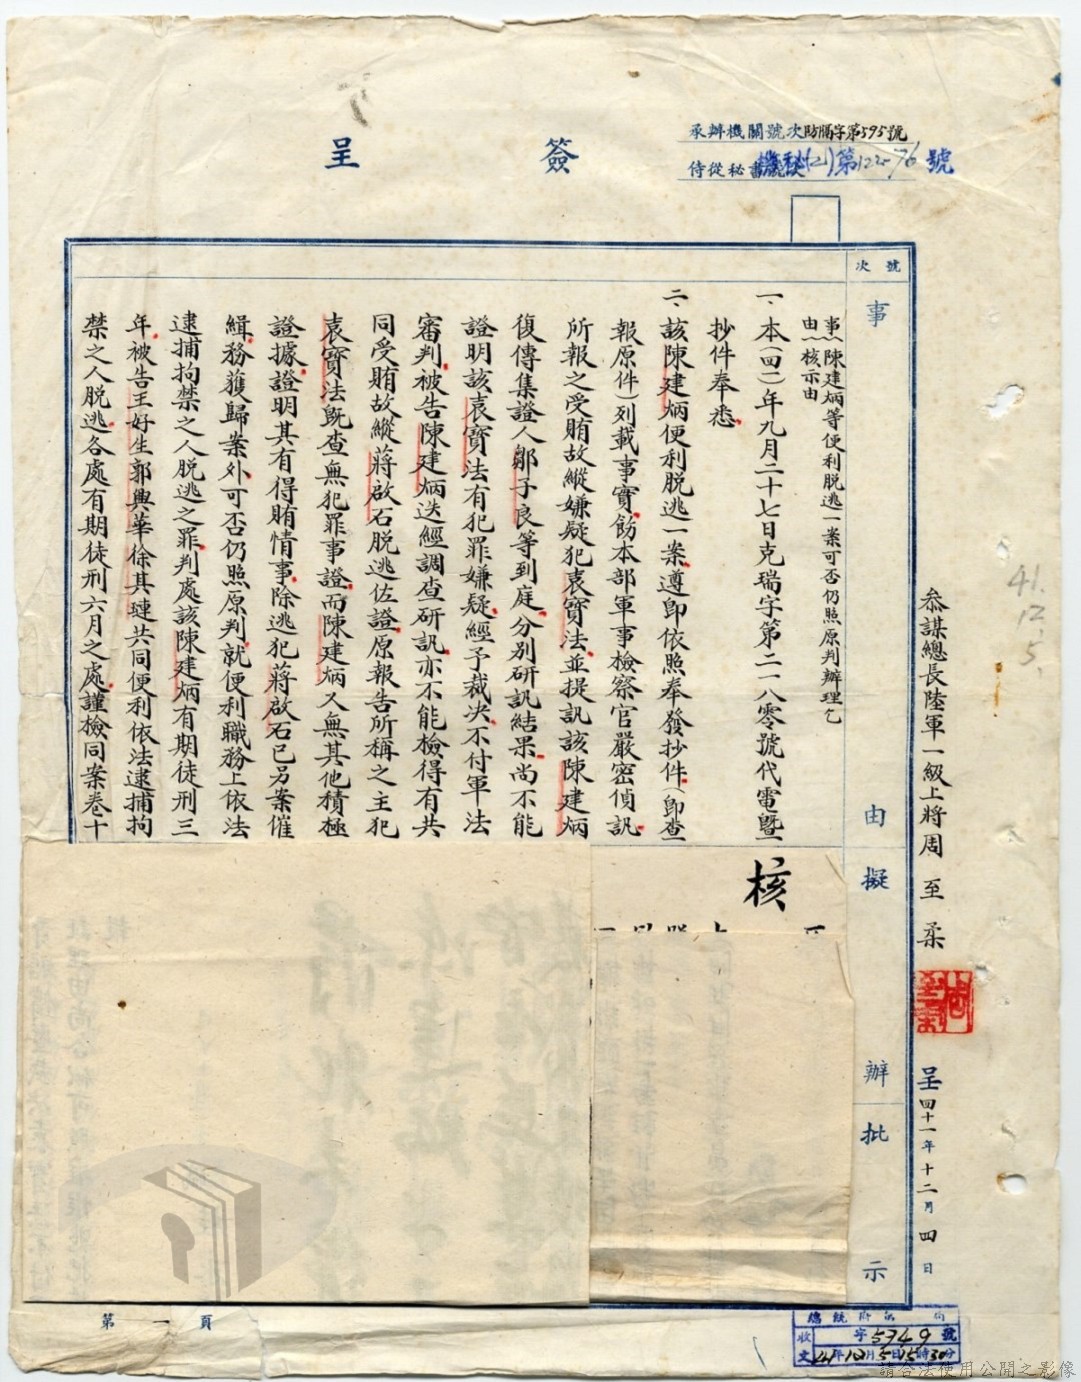 簽呈
承辦機關號次防隔字第595號
侍從秘書
機秘(乙)第122-76號
號次
事由
擬辦
批示
事由：陳建炳等便利脫逃一案可否仍照原判辦理乞
核示由
一、本(四一)年九月二十七日克瑞字第二一八零號代電暨
抄件奉悉
二、該陳建炳便利脫逃一案遵即依照奉發抄件(即查
報原件)列載事實飭本部軍事檢察官嚴密偵訊
所報之受賄故縱嫌疑犯袁寶法並提訊該陳建炳
復傳集證人鄒子良等到庭分別研訊結果尚不能
證明該袁寶法有犯罪嫌疑經予裁決不付軍法
審判被告陳建炳迭經調查研訊亦不能檢得有共
同受賄故縱蔣啟石脫逃佐證原報告所稱之主犯
袁寶法既查無犯罪事證而陳建炳又無其他積極
證據證明其有得賄情事除逃犯蔣啟石已另案催
緝務獲歸案外可否仍照原判就便利職務上依法
逮捕拘禁之人脫逃之罪判處該陳建炳有期徒刑三
年被告王好生郭興華徐其璉共同便利依法逮捕拘
禁之人脫逃各處有期徒刑六月之處謹檢同案卷十
核
參謀總長陸軍一級上將周至柔
呈四十一年十二月四日
41.12.5.
第一頁
總統府
收文
字5749號
41年12月5日15時30分
請合法使用公開之影像